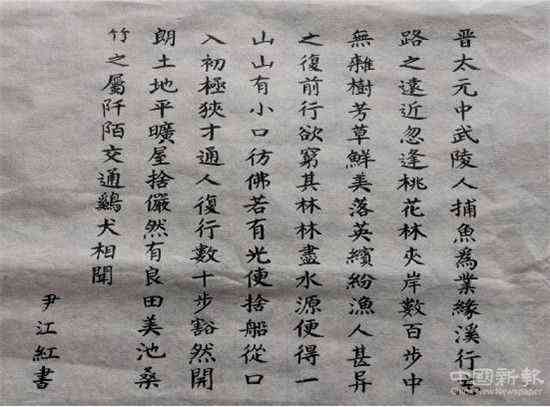 晋太元中武陵人捕魚爲業緣溪行忘
路之遠近忽逢桃花林夾岸數百步中
無雜樹芳草鮮美落英繽紛漁人甚异
之復前行欲窮其林林盡水源便得一
山山有小口彷佛若有光便捨船從口
入初極狹才通人復行數十步豁然開
朗土地平曠屋捨儼然有良田美池桑
竹之屬阡陌交通鷄犬相聞
尹江紅書
中國新報